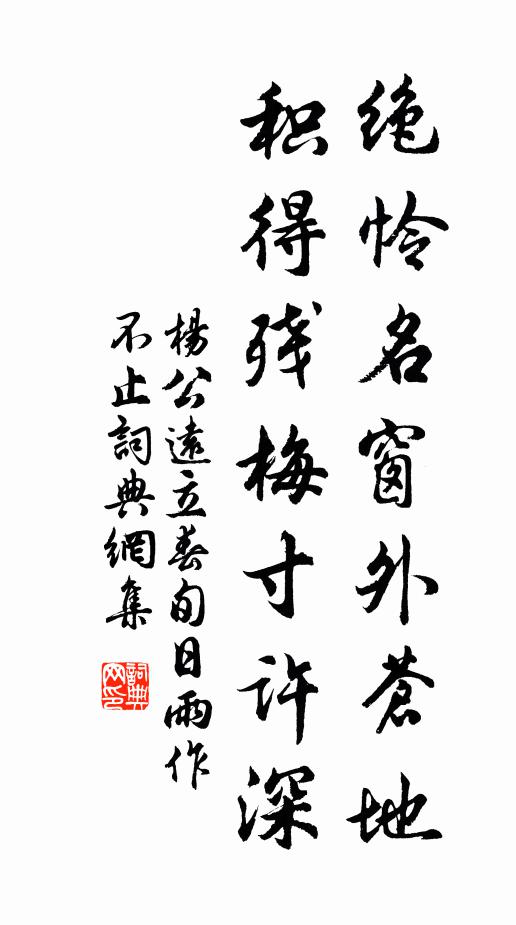 绝怜名窗外苍地
积得残梅寸许深
杨公远立春旬日雨作
不止词典網集
詞典
网印